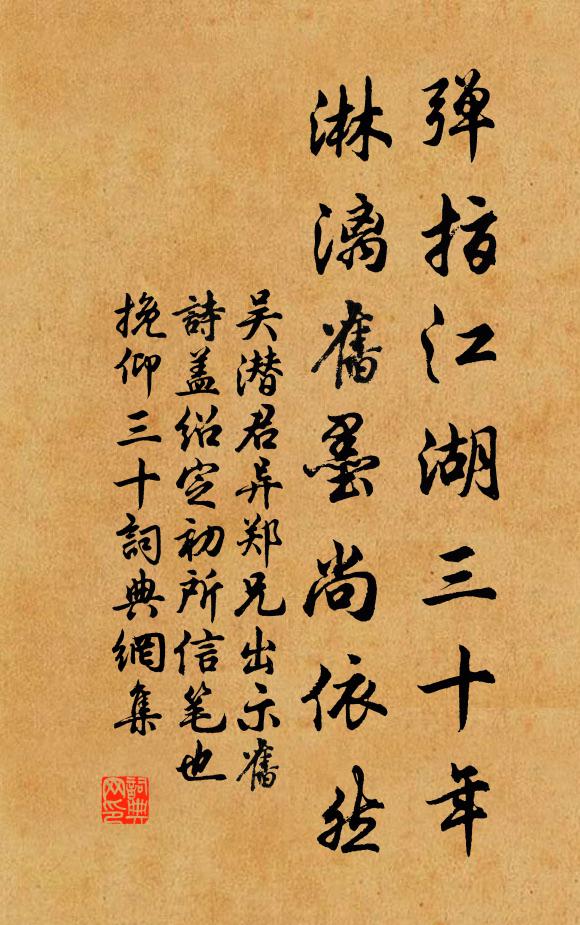 弹指江湖三十年
淋漓舊墨尚依然
吴潜君异郑兄出示舊
詩盖绍定初所信笔也
挽仰三十詞典網集
詞典网印